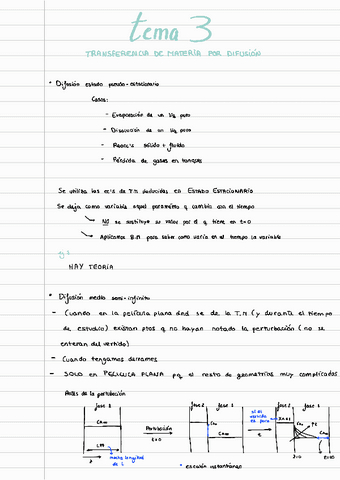 tema 3
TRANSFERENCIA DE MATERÍA POR DIFUSIÓN
* Difusión estado pseudo-estacionario
Casos:
- Evaporación de un líq puro
- Disolución de un líq puro
- Reacc's sólido + fluido
- Pérdida de gases en tanques
Se utiliza las ec's de T.M deducidas en ESTADO ESTACIONARIO
Se deja como variable aquel parámetro q cambia con el tiempo
NO se sustituye su valor por el q tiene en t=0
Aplicamos B.M para saber como varía en el tiempo la variable
HAY TEORÍA
* Difusión medio semi-infinito
- Cuando en la película plana dnd se da la T.M (y durante el tiempo
de estudio) existan ptos q no hayan notado la perturbación (no se
enteran del vertido)
- Cuando tengamos derrames
- SOLO en PELÍCULA PLANA pq el resto de geometrías muy complicadas
Antes de la perturbación
fase 2 fase 1
fase 2 fase 1
fase 1
Perturbación
t=0
si el vertido es puro
t
mucha longitud de L
* escalón instantáneo